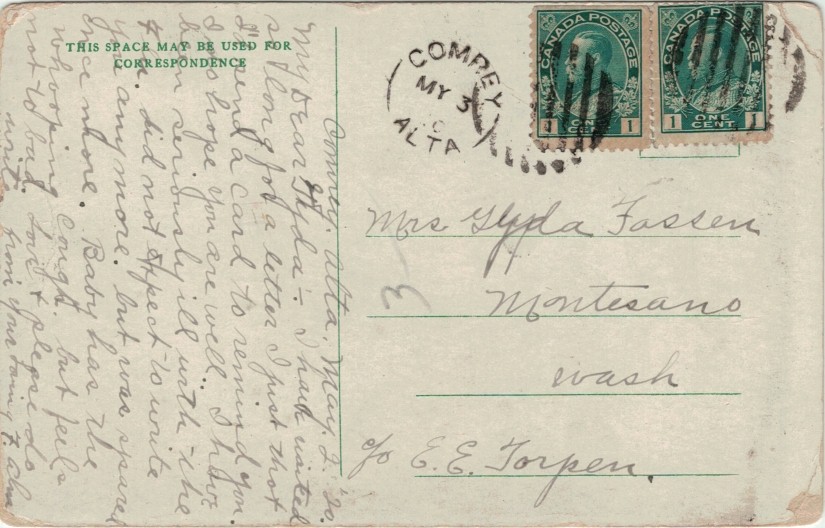 THIS SPACE MAY BE USED FOR
CORRESPONDENCE
Comrey, Alta, May 2.
My Dear Glyda - I have waited
so long for a letter I just that
I send a card to remind you.
I do hope you are well. I have
been seriously ill with the
did not expect to write
you any more. but was spared
once more. Baby has the
whooping cough. but feels
not to bad Love & please do
writ. from your
COMREY
MY 3
ALTA
CANADA POSTAGE
1 ONE CENT 1
CANADA POSTAGE
1 ONE CENT 1
Mrs Glyda Fossen
Montesano
Wash
c/o E. E. Torpen.